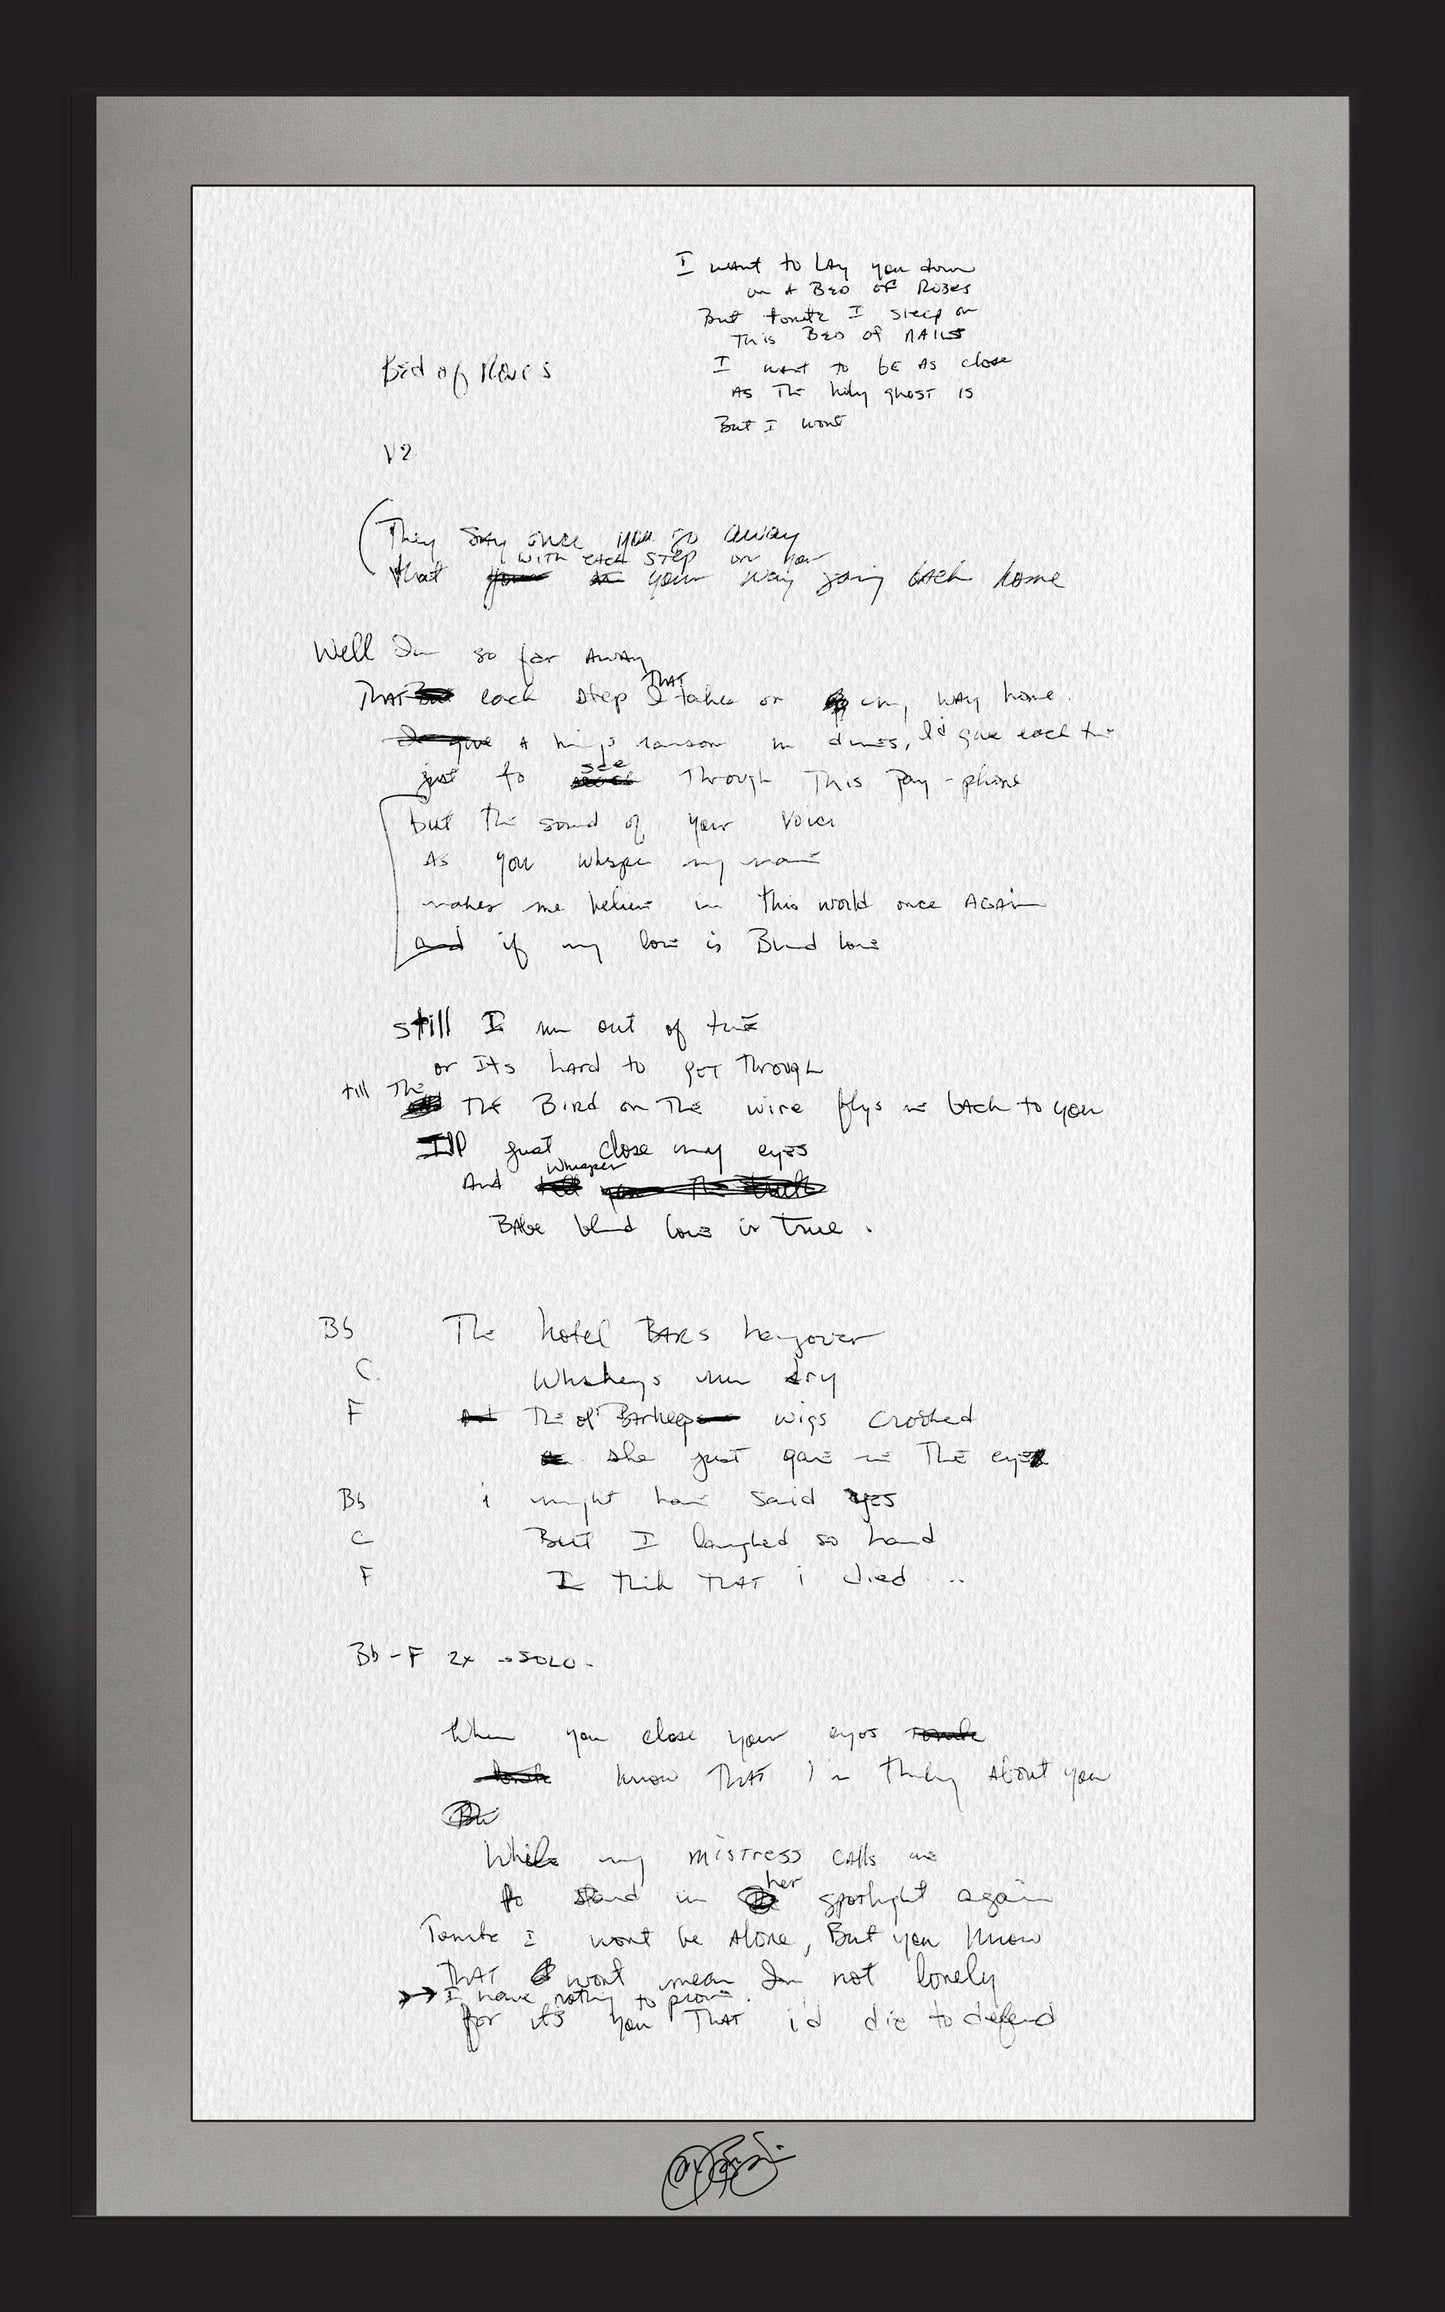 I want to LAy you down
on A BED OF ROSES
But tonite I sleep on
This BED of NAILS
I want to bE As close
As The holy ghost is
But I wont
Bed of Roses
V2
(They SAy once you go away
with each STEp on your
that your way going bAck home
Well Im so far AwAy
THAT
THAT each step I takes on my wAy home.
I'd give A kings ransom in dimes, I'd give each time
see
just to Through This Pay-phone
But the sound of your voice
As you whisper my name
makes me believe in this world once AGAin
and if my love is Blind love
still I run out of time
or ITs hArd to gET Through
till The
THE BIRD on The wire flys me bAck to you
I'll just close my eyes
whisper
And tell you The truth
BAbe blind love is True.
Bb The hotel BARs hangover
C. Whiskeys run dry
F And The ol' BArkeeps wigs crooked
she just gave me The eye
Bb i might have said yES
C But I laughed so hard
F I think THAT i died ...
Bb - F 2x - SOLO -
When you close your eyes tonite
tonite know THAT I'm thinking About you
While my misTress cAlls me
her
to stand in spotlight again
Tonite I wont be Alone, But you know
THAT wont mean Im not lonely
→ I have nothing to prove.
for it's you THAT i'd die to defend